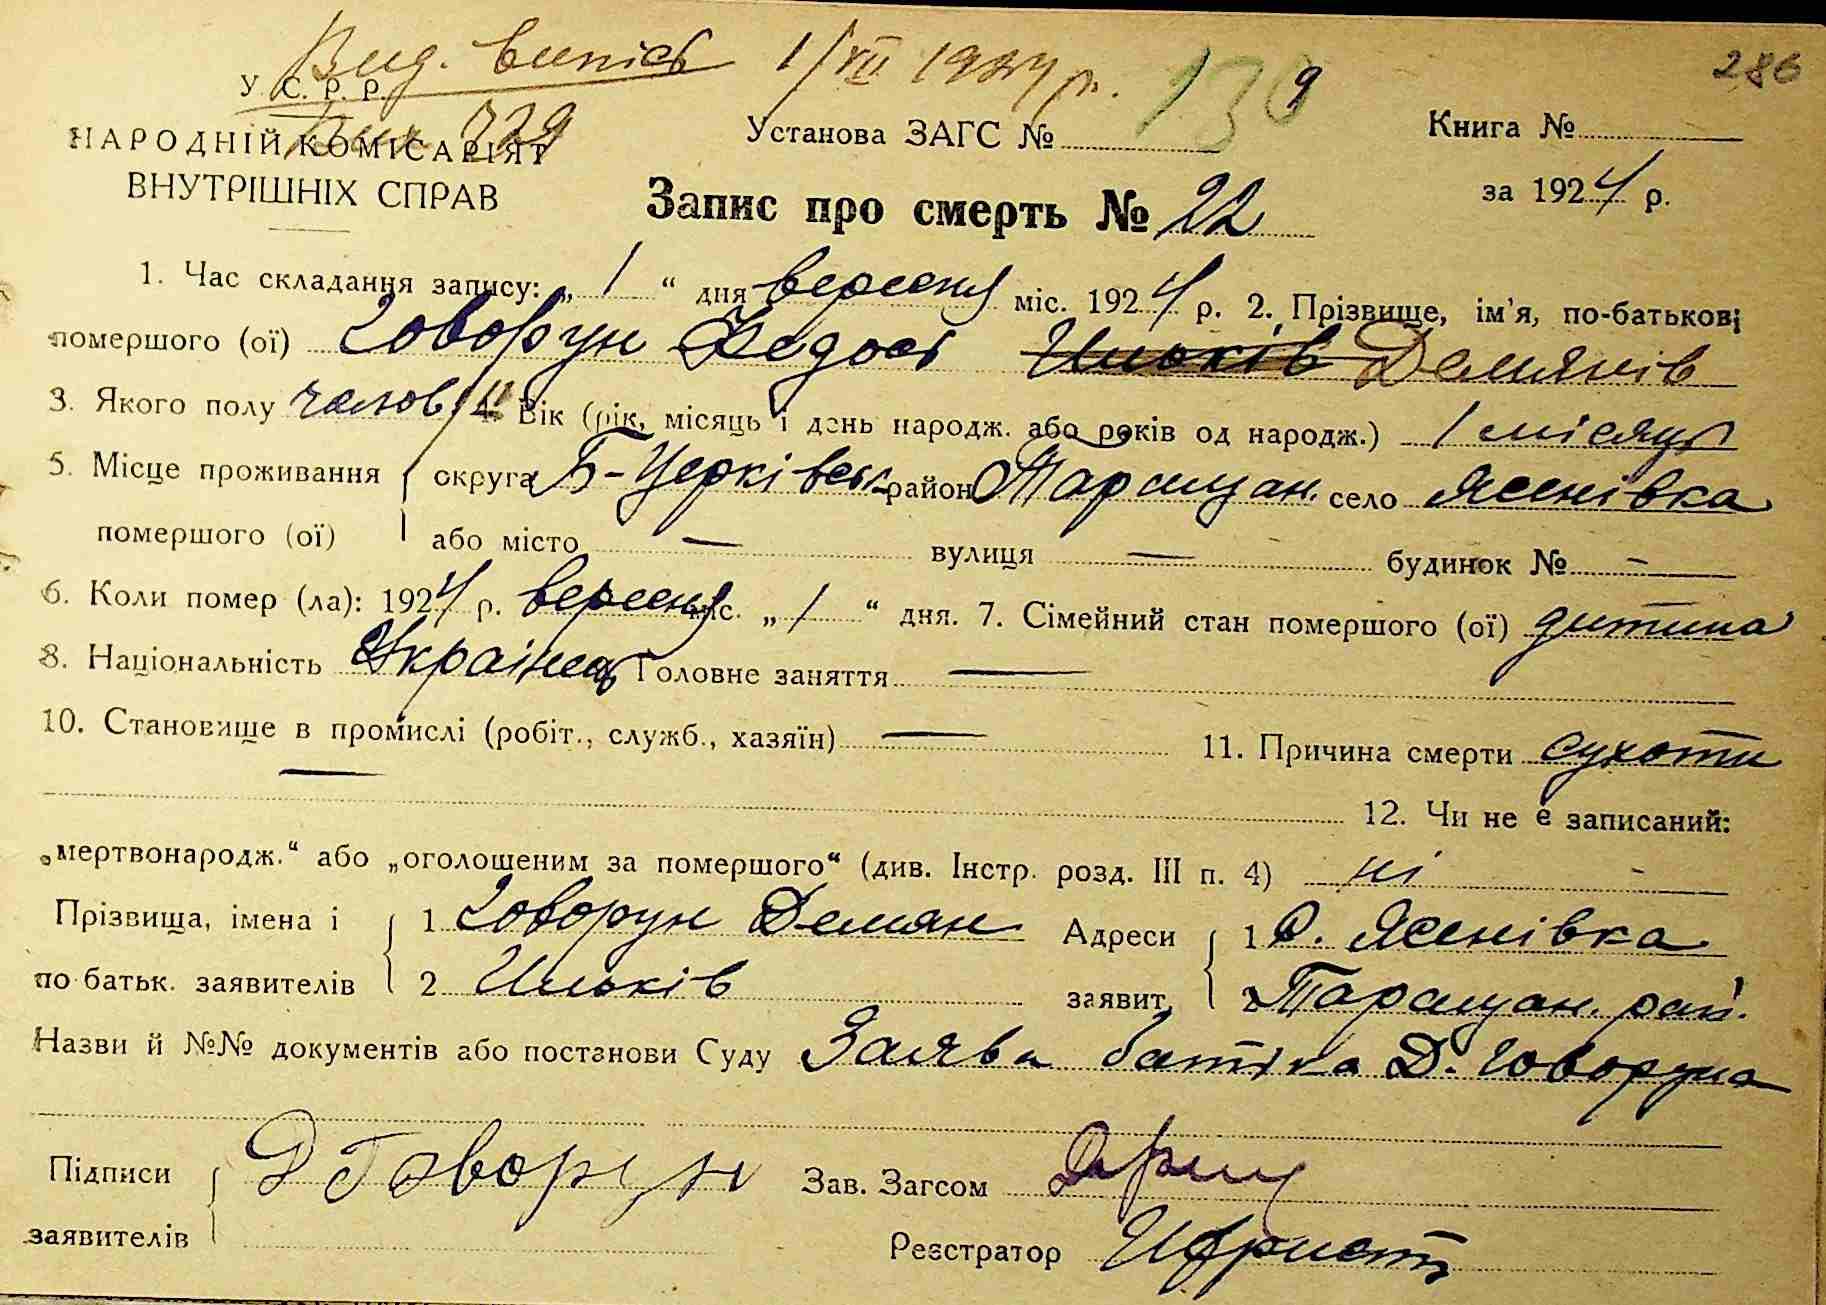 Вид. випісь 1/XII 1924 р. 139 286
У. С. Р. Р.
НАРОДНІЙ КОМІСАРІЯТ 729 Установа ЗАГС № Книга №
ВНУТРІШНІХ СПРАВ Запис про смерть № 22 за 1924 р.
1. Час складання запису: „ 1 “ дня вересня міс. 1924 р. 2. Прізвище, ім'я, по-батькові
помершого (ої) Говорун Федос Ильків Демянів
3. Якого полу чолов. 4. Вік (рік, місяць і день народж. або років од народж.) 1 місяць
5. Місце проживання округа Б-Церківськ район Таращан. село Ясенівка
помершого (ої) або місто — вулиця — будинок № —
6. Коли помер (ла): 1924 р. вересня міс. „ 1 “ дня. 7. Сімейний стан помершого (ої) дитина
8. Національність Українець Головне заняття —
10. Становище в промислі (робіт., служб., хазяїн) — 11. Причина смерти сухоти
— 12. Чи не є записаний:
„мертвонародж.“ або „оголошеним за помершого“ (див. Інстр. розд. III п. 4) ні -
Прізвища, імена і 1 Говорун Демян Адреси 1 С. Ясенівка
по батьк. заявителів 2 Ильків заявит. 2 Таращан. рай.
Назви й №№ документів або постанови Суду Заява батька Д. Говоруна
Підписи Д Говорун Зав. Загсом
заявителів Реєстратор